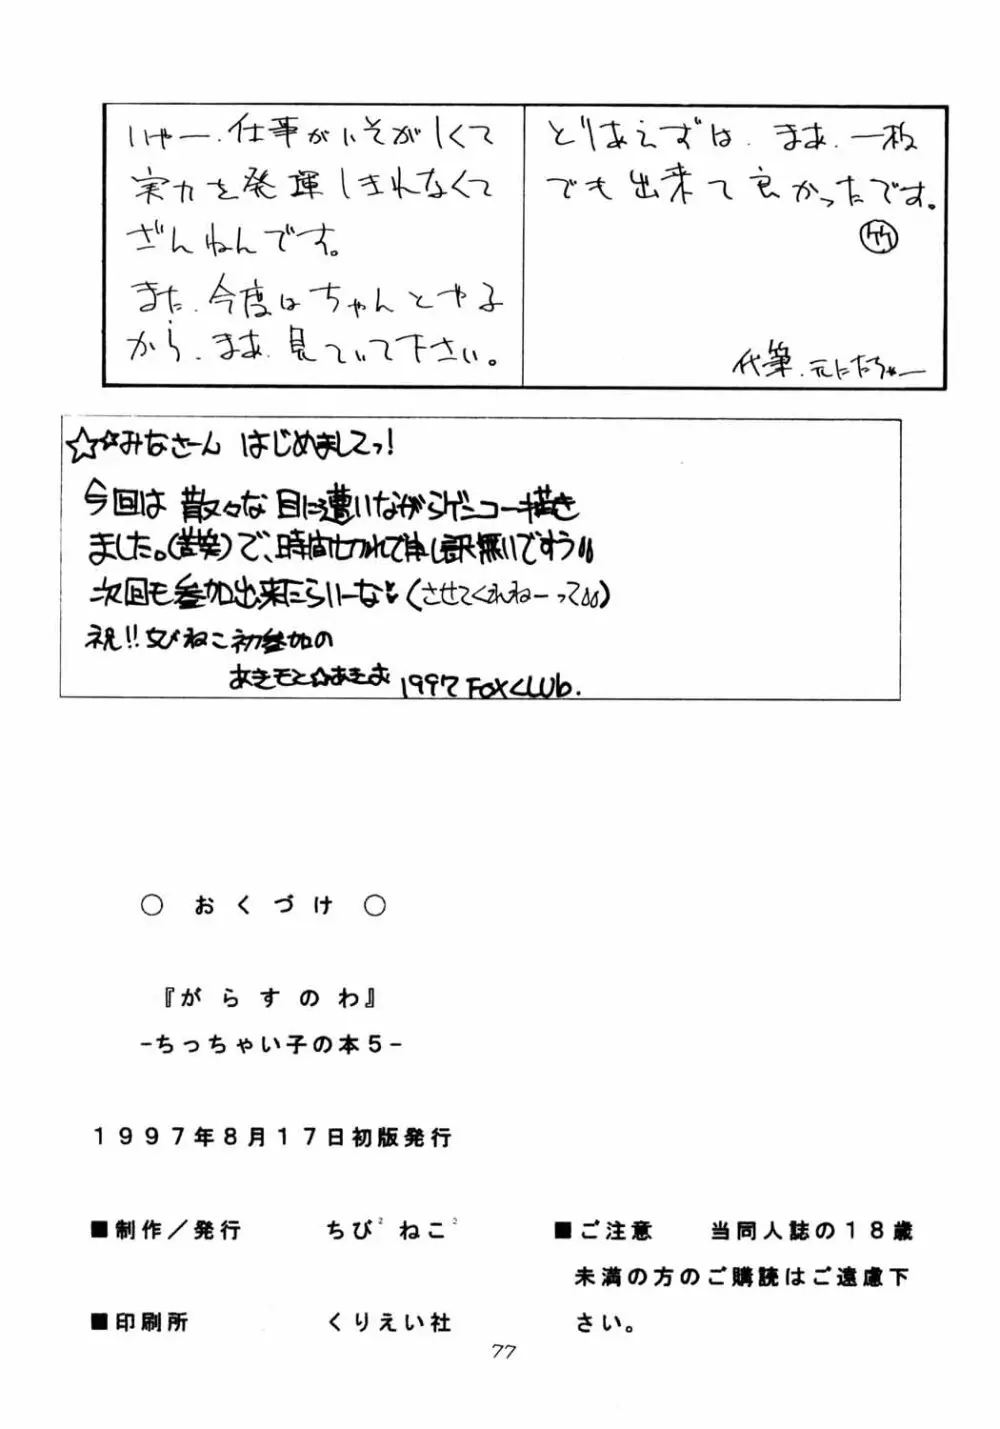 いやー、仕事がいそがしくて
実力を発揮しきれなくて
ざんねんです。
また、今度はちゃんとやる
から、まあ、見ていて下さい。
とりあえずは、まあ、一枚
でも出来て良かったです。
竹
代筆、元にたちゃー
☆☆みなさーん はじめましてっ!
今回は 散々な 目に遭いながらゲンコー描き
ました。(苦笑)で、時間切れで申し訳無いですう
次回も参加出来たらいーな♥(させてくれねーって)
祝!!ちびねこ初参加の
あきモと☆あきお 1997 FOXCLUb.
○ おくづけ ○
『がらすのわ』
-ちっちゃい子の本5-
1997年8月17日初版発行
■制作/発行 ちび²ねこ²
■印刷所 くりえい社
■ご注意 当同人誌の18歳
未満の方のご購読はご遠慮下
さい。
77